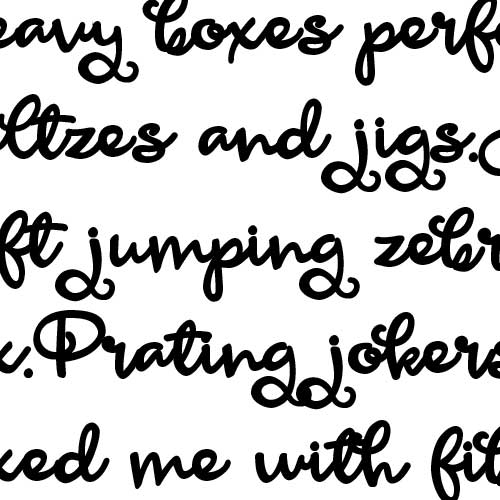 eavy boxes perfo
ltzes and jigs.
ft jumping zebr
x. Prating jokers
xed me with fit